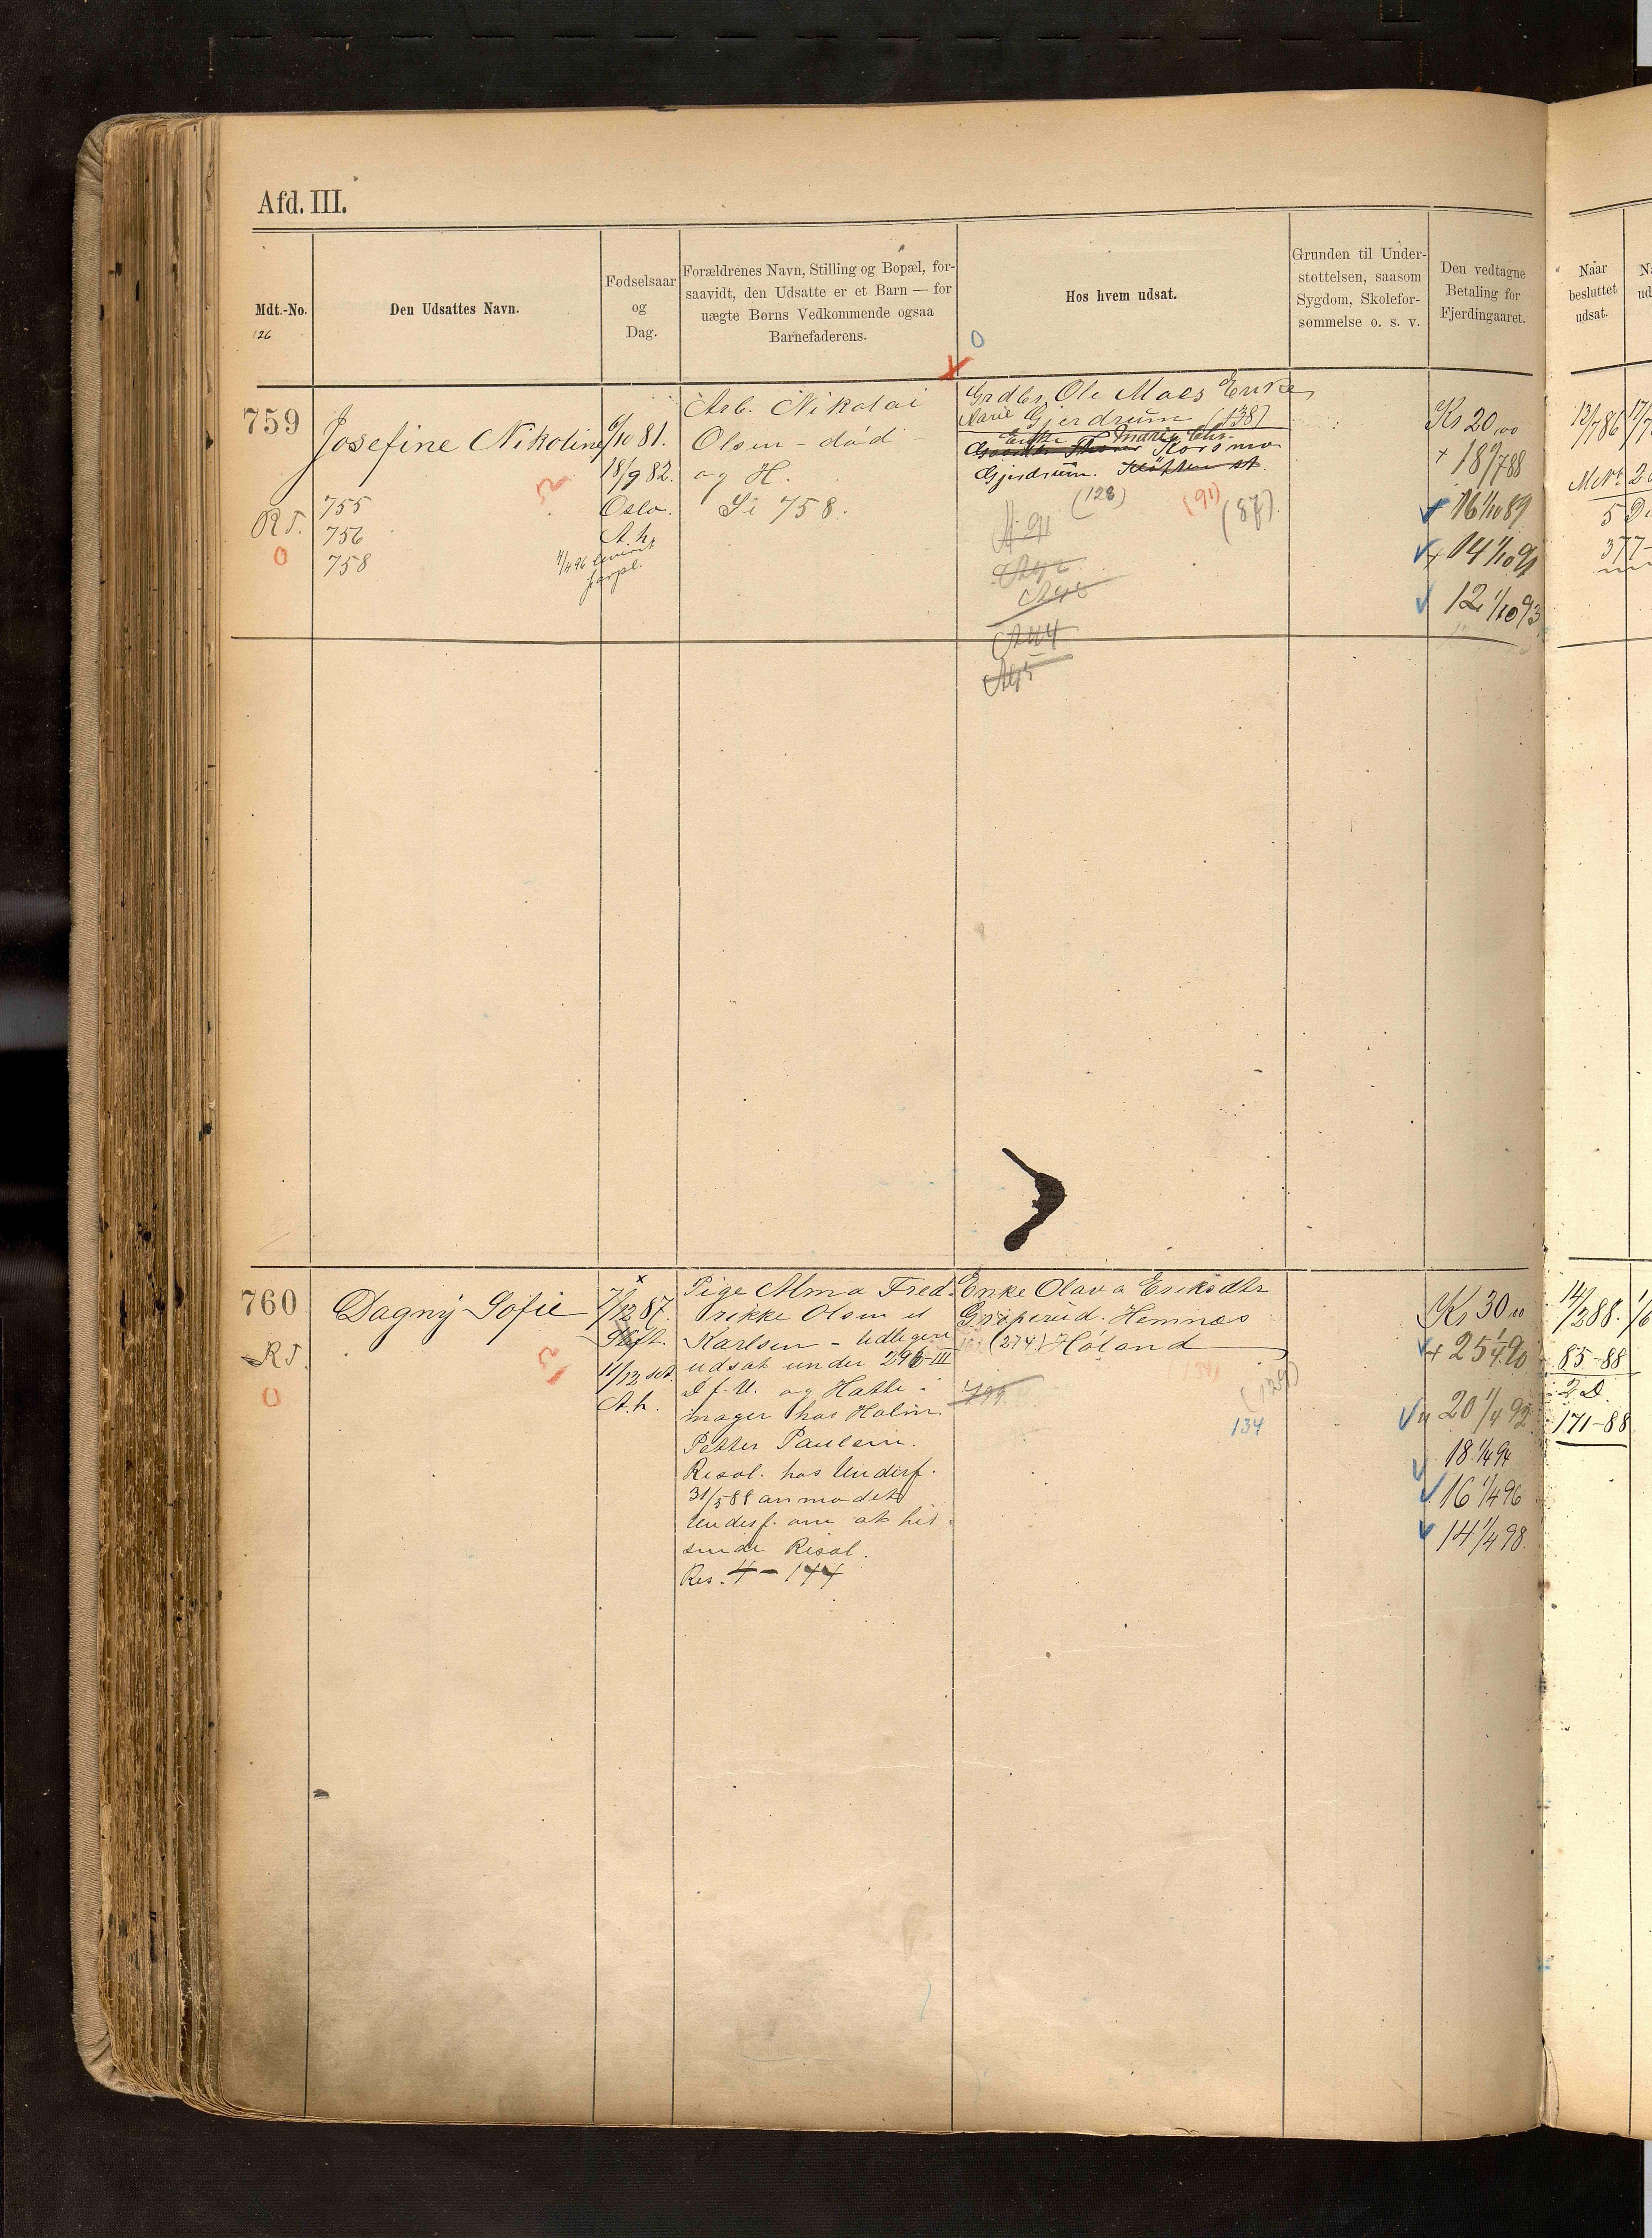 Afd. III.
Mdt.-No.
126
Den Udsattes Navn.
Fødselsaar
og
Dag.
Forældrenes Navn, Stilling og Bopæl, for-
saavidt, den Udsatte er et Barn — for
uægte Børns Vedkommende ogsaa
Barnefaderens.
Hos hvem udsat.
Grunden til Under-
støttelsen, saasom
Sygdom, Skolefor-
sømmelse o. s. v.
Den vedtagne
Betaling for
Fjerdingaaret.
Naar
besluttet
udsat.
759
R T.
0
Josefine Nikoline
755
756
758
6/10 81.
18/9 82.
Oslo.
A. h.
Arb. Nikolai
Olsen - død
og H.
Se 758.
Grdbr. Ole Moes Enke
Marie Gjerdrum (138)
Enke Marie Chr.
Korsmo
Gjerdrum. Kløften st.
(128) (91) (87)
Kr 20,00
+ 18 0/788
16 1/10 89
+ 14 1/10 91
12 1/10 93
13/7 86
5 D
377-
760
R T.
0
Dagny Sofie
7/12 87.
Stift.
11/12 s.A.
A. h.
Pige Alma Fred-
rikke Olsen el
Karlsen - tidligere
udsat under 296-III
D f. U. og Hatte-
mager hos Holm
Petter Paulsen.
Resol. hos Undersf.
31/5 88 anmodet
Undersf. om at hid-
sende Resol.
Res. 4 - 144
Enke Olava Eriksdtr
Griperud. Hemnæs
(274) Høland
199
(129)
134
Kr 30 00
+ 25 1/4 90
20 1/4 92
18 1/4 94
16 1/4 96
14 1/4 98.
14/2 88.
85-88
2 D
171-88